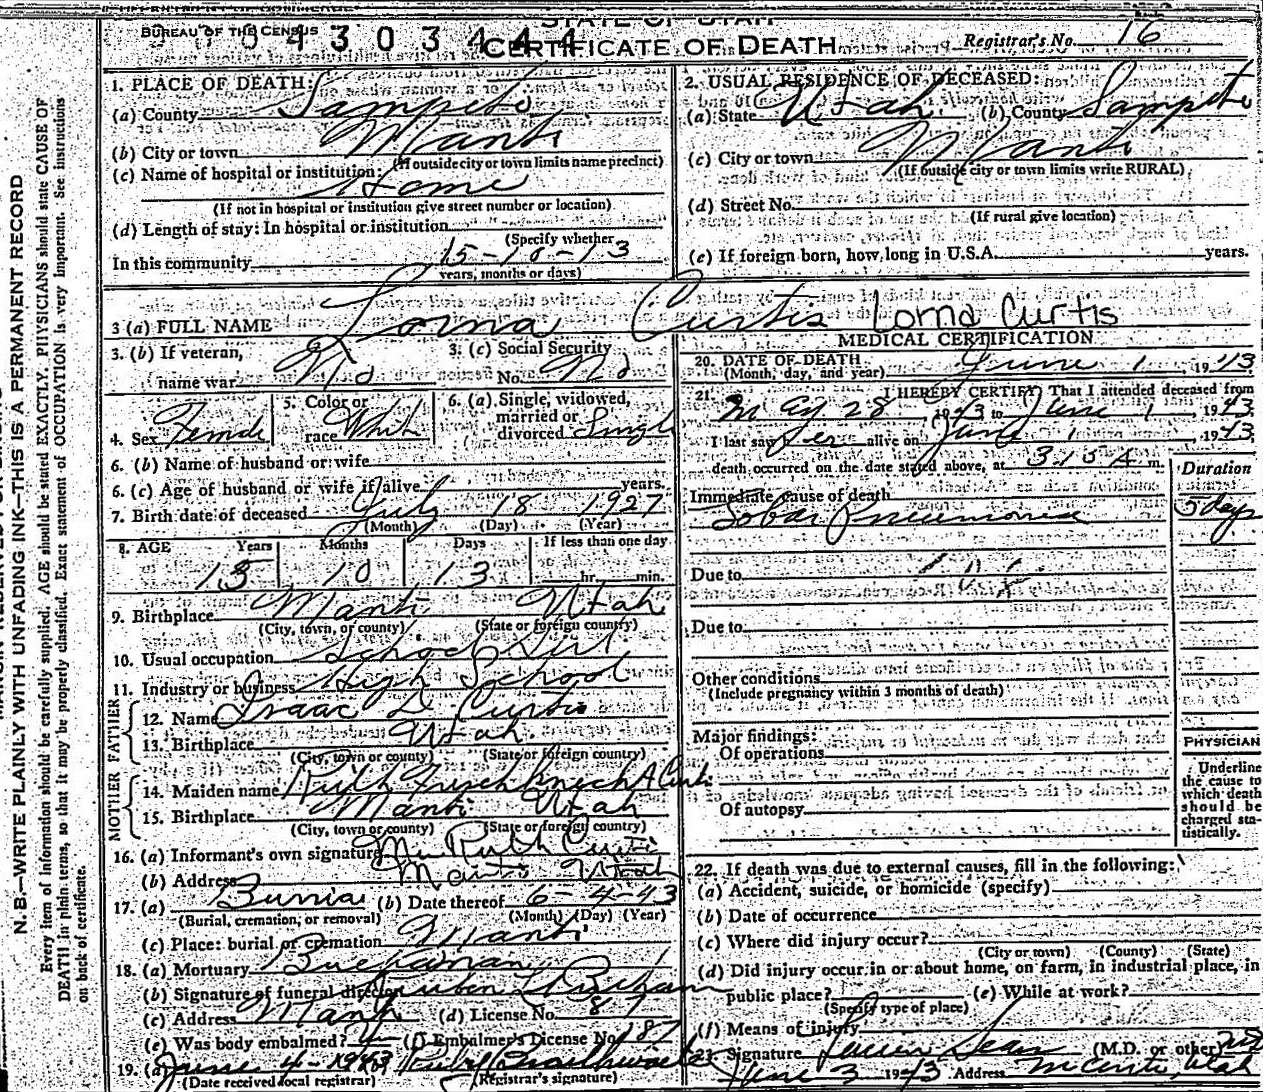 STATE OF UTAH
BUREAU OF THE CENSUS
CERTIFICATE OF DEATH
Registrar's No. 16
1. PLACE OF DEATH:
(a) County Sanpete
(b) City or town Manti
(If outside city or town limits name precinct)
(c) Name of hospital or institution:
Home
(If not in hospital or institution give street number or location)
(d) Length of stay: In hospital or institution
(Specify whether
In this community 15-10-13
years, months or days)
2. USUAL RESIDENCE OF DECEASED:
(a) State Utah (b) County Sanpete
(c) City or town Manti
(If outside city or town limits write RURAL)
(d) Street No.
(If rural give location)
(e) If foreign born, how long in U.S.A. years.
3 (a) FULL NAME Lorna Curtis Lorna Curtis
3. (b) If veteran,
name war No
3. (c) Social Security
No. No
4. Sex Female
5. Color or
race White
6. (a) Single, widowed,
married or
divorced Single
6. (b) Name of husband or wife
6. (c) Age of husband or wife if alive years.
7. Birth date of deceased July 18 1927
(Month) (Day) (Year)
8. AGE Years Months Days If less than one day
15 10 13 hr. min.
9. Birthplace Manti Utah
(City, town, or county) (State or foreign country)
10. Usual occupation School Girl
11. Industry or business High School
FATHER
12. Name Isaac D Curtis
13. Birthplace Utah
(City, town or county) (State or foreign country)
MOTHER
14. Maiden name Ruth Frischknecht
15. Birthplace Manti Utah
(City, town or county) (State or foreign country)
16. (a) Informant's own signature Mrs Ruth Curtis
(b) Address Manti Utah
17. (a) Burrial (b) Date thereof 6-4-43
(Burial, cremation, or removal) (Month) (Day) (Year)
(c) Place: burial or cremation Manti
18. (a) Mortuary Buchanan
(b) Signature of funeral director
(c) Address Manti (d) License No. 87
(e) Was body embalmed? (f) Embalmer's License No. 187
19. (a) June 4-1943 Ruby Braithwaite
(Date received local registrar) (Registrar's signature)
MEDICAL CERTIFICATION
20. DATE OF DEATH
(Month, day, and year) June 1, 1943
21. I HEREBY CERTIFY, That I attended deceased from
May 28, 1943 to June 1, 1943
I last saw her alive on June 1, 1943
death occurred on the date stated above, at 3:15 A m.
Duration
Immediate cause of death
Lobar Pneumonia 5 days
Due to
Due to
Other conditions
(Include pregnancy within 3 months of death)
Major findings:
Of operations
Of autopsy
PHYSICIAN
Underline
the cause to
which death
should be
charged sta-
tistically.
22. If death was due to external causes, fill in the following:
(a) Accident, suicide, or homicide (specify)
(b) Date of occurrence
(c) Where did injury occur?
(City or town) (County) (State)
(d) Did injury occur in or about home, on farm, in industrial place, in
public place? (e) While at work?
(Specify type of place)
(f) Means of injury
23. Signature Lucien Sears (M.D. or other)
June 3 1943 Address Manti, Utah
N. B.—WRITE PLAINLY WITH UNFADING INK—THIS IS A PERMANENT RECORD
Every item of information should be carefully supplied. AGE should be stated EXACTLY. PHYSICIANS should state CAUSE OF
DEATH in plain terms, so that it may be properly classified. Exact statement of OCCUPATION is very important. See instructions
on back of certificate.